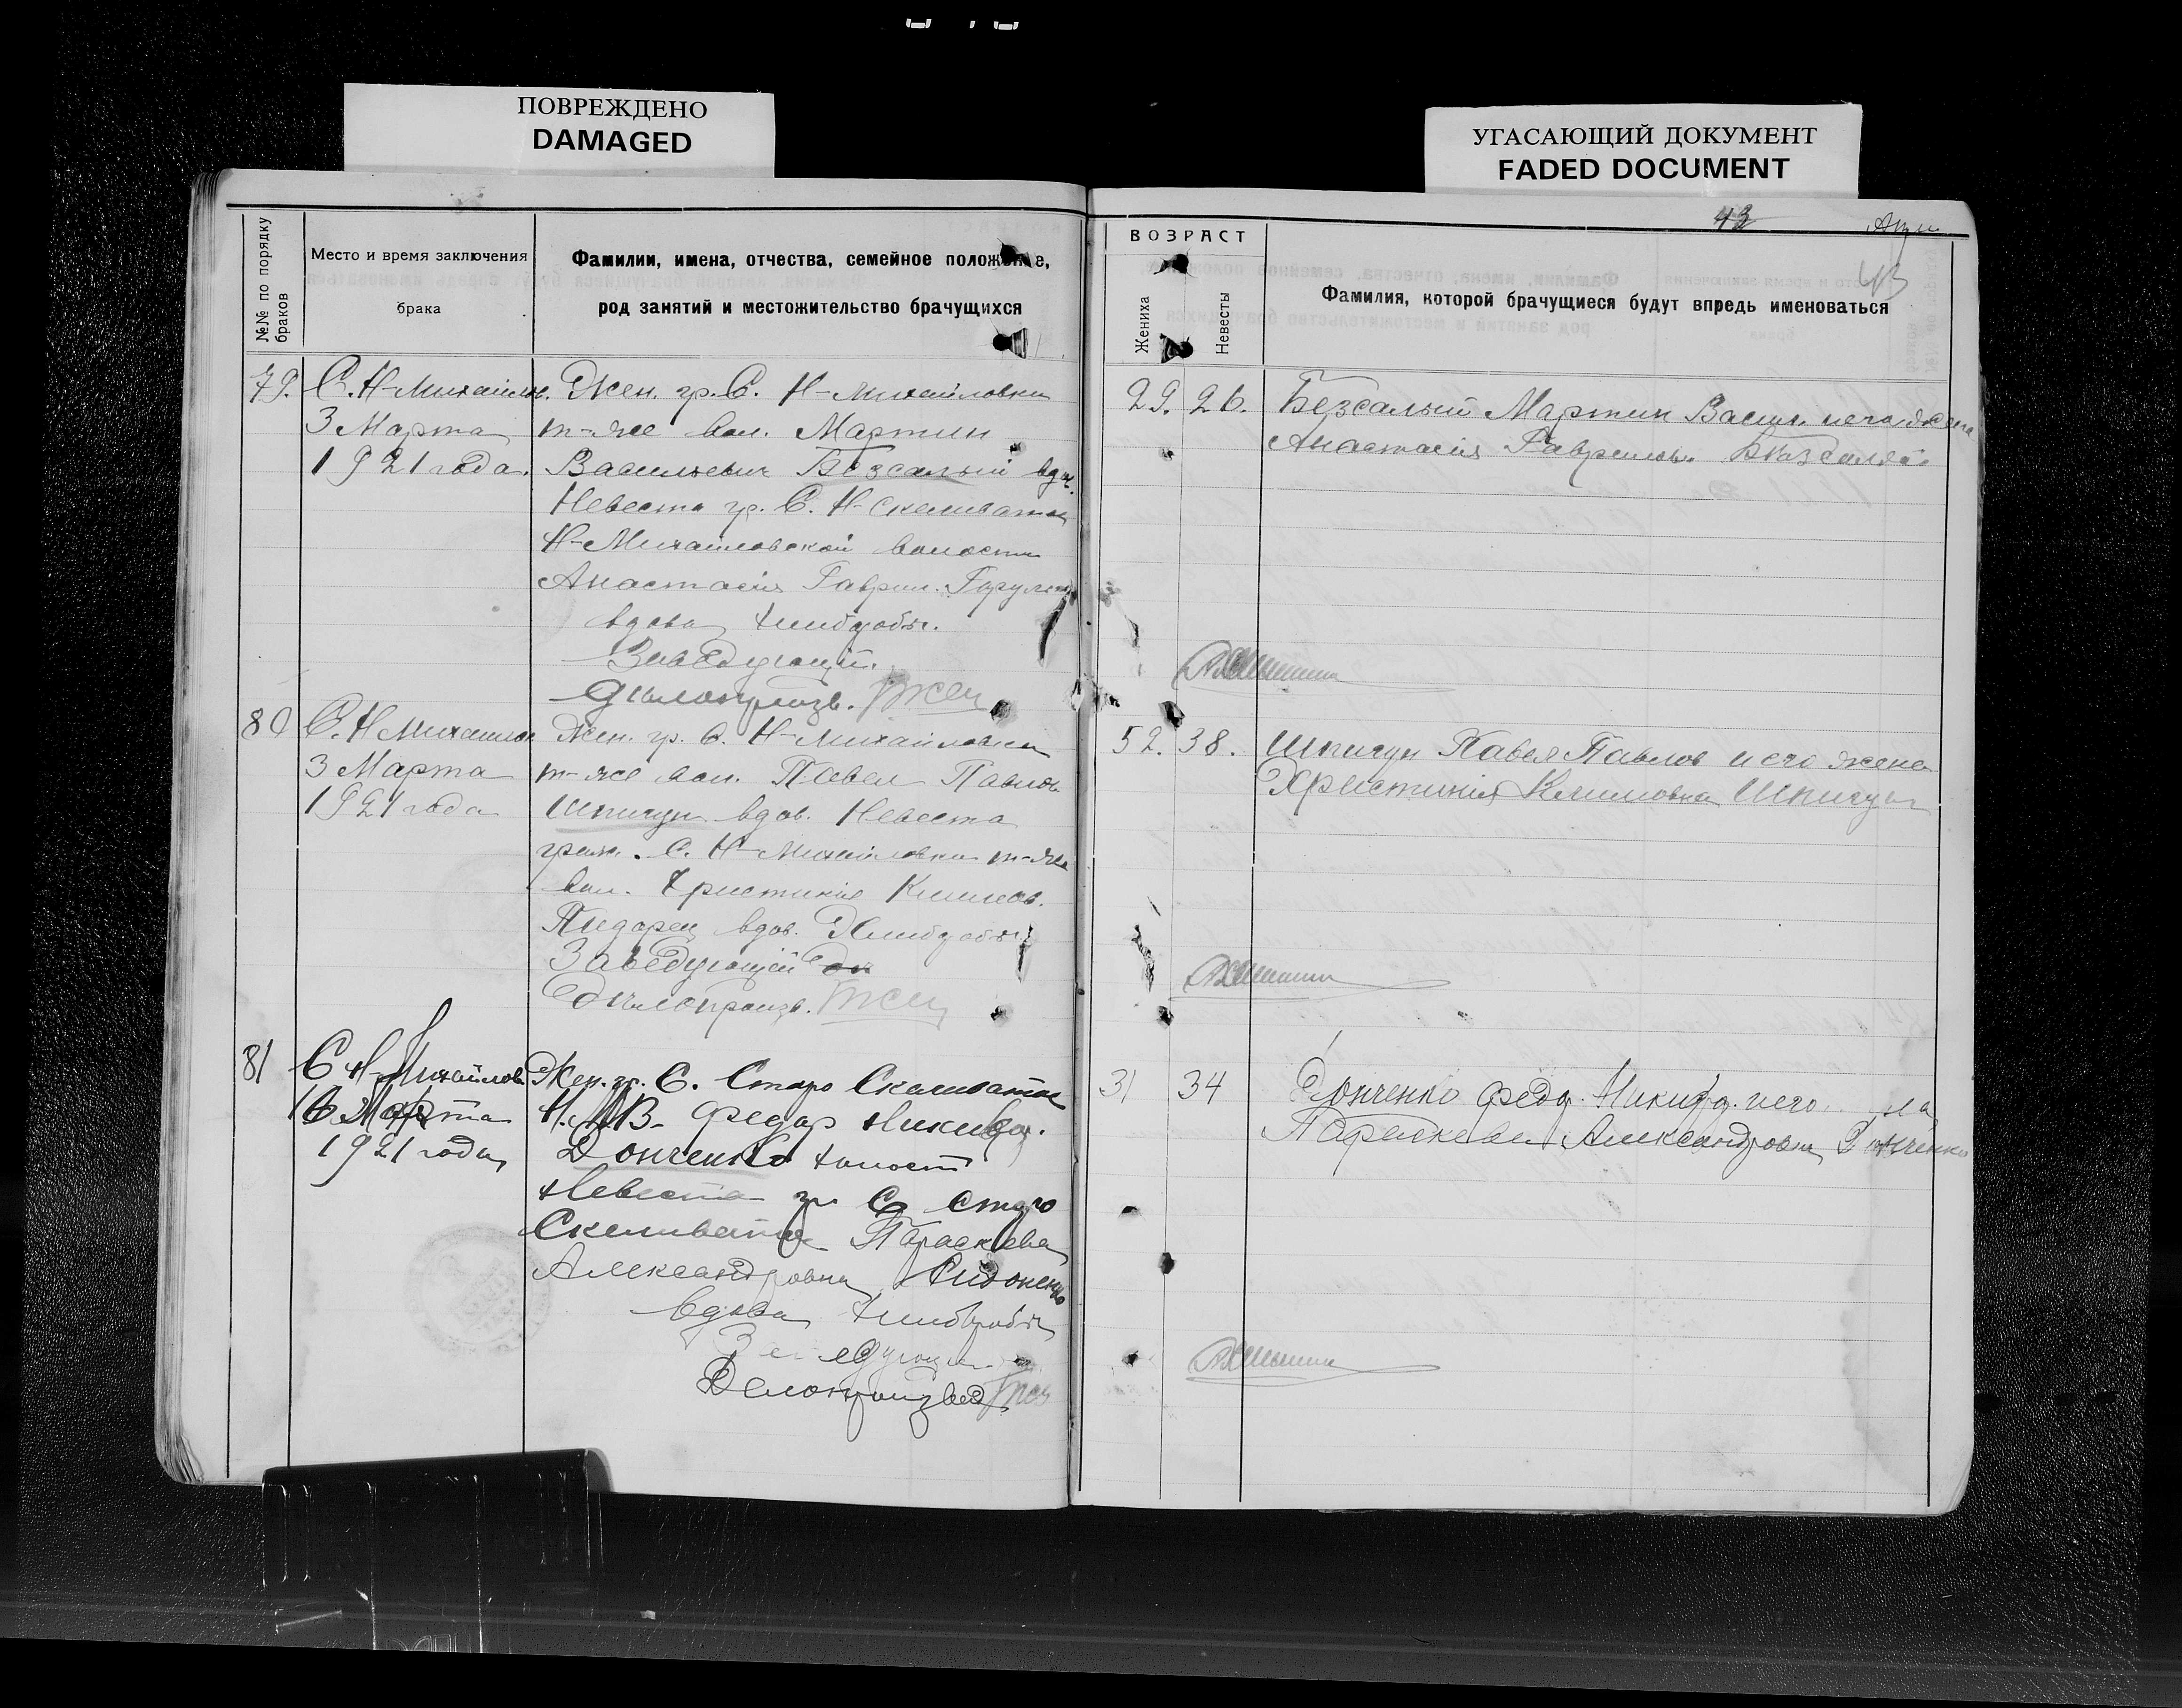 ПОВРЕЖДЕНО
DAMAGED
УГАСАЮЩИЙ ДОКУМЕНТ
FADED DOCUMENT
№№ по порядку
браков
Место и время заключения
брака
Фамилии, имена, отчества, семейное положение,
род занятий и местожительство брачущихся
43
43
ВОЗРАСТ
Жениха
Невесты
Фамилия, которой брачущиеся будут впредь именоваться
79.
С. Н-Михайлов.
3 Марта
1921 года.
Жен. гр. С. Н-Михайловки
т-же вол. Мартин
Васильевич Безсалый вдов.
Невеста гр. С. Н-Скелеватки
Н-Михайловской волости
Анастасія Гаврил.
вдова хлибороб.
Заведующий
Дилопроизв.
29. 26.
Безсалый Мартин Васил. и его жена
Анастасія Гаврилов. Безсалая
80
С. Н Михайлов
3 Марта
1921 года
Жен. гр. С. Н-Михайловки
т-же вол. Павел Павлов
Шпигун вдов. Невеста
граж. С. Н-Михайловки т-же
вол. Христинія Климов.
вдов. Хлибороб.
Заведующий
Дилопроизв.
52. 38.
Шпигун Павел Павлов и его жена
Христинія Климовна Шпигун
81
С Н-Михайлов
16 Марта
1921 года
Жен. гр. С. Старо Скелеватки
Н. М В- Федор Никифор.
Донченко холост
Невеста гр С Старо
Скелеватки Параскева
Александровна
вдова хлибороб.
Заведующий
Делопроизвед
31 34
Донченко Федор Никифор. и его
Параскева Александровна Донченко